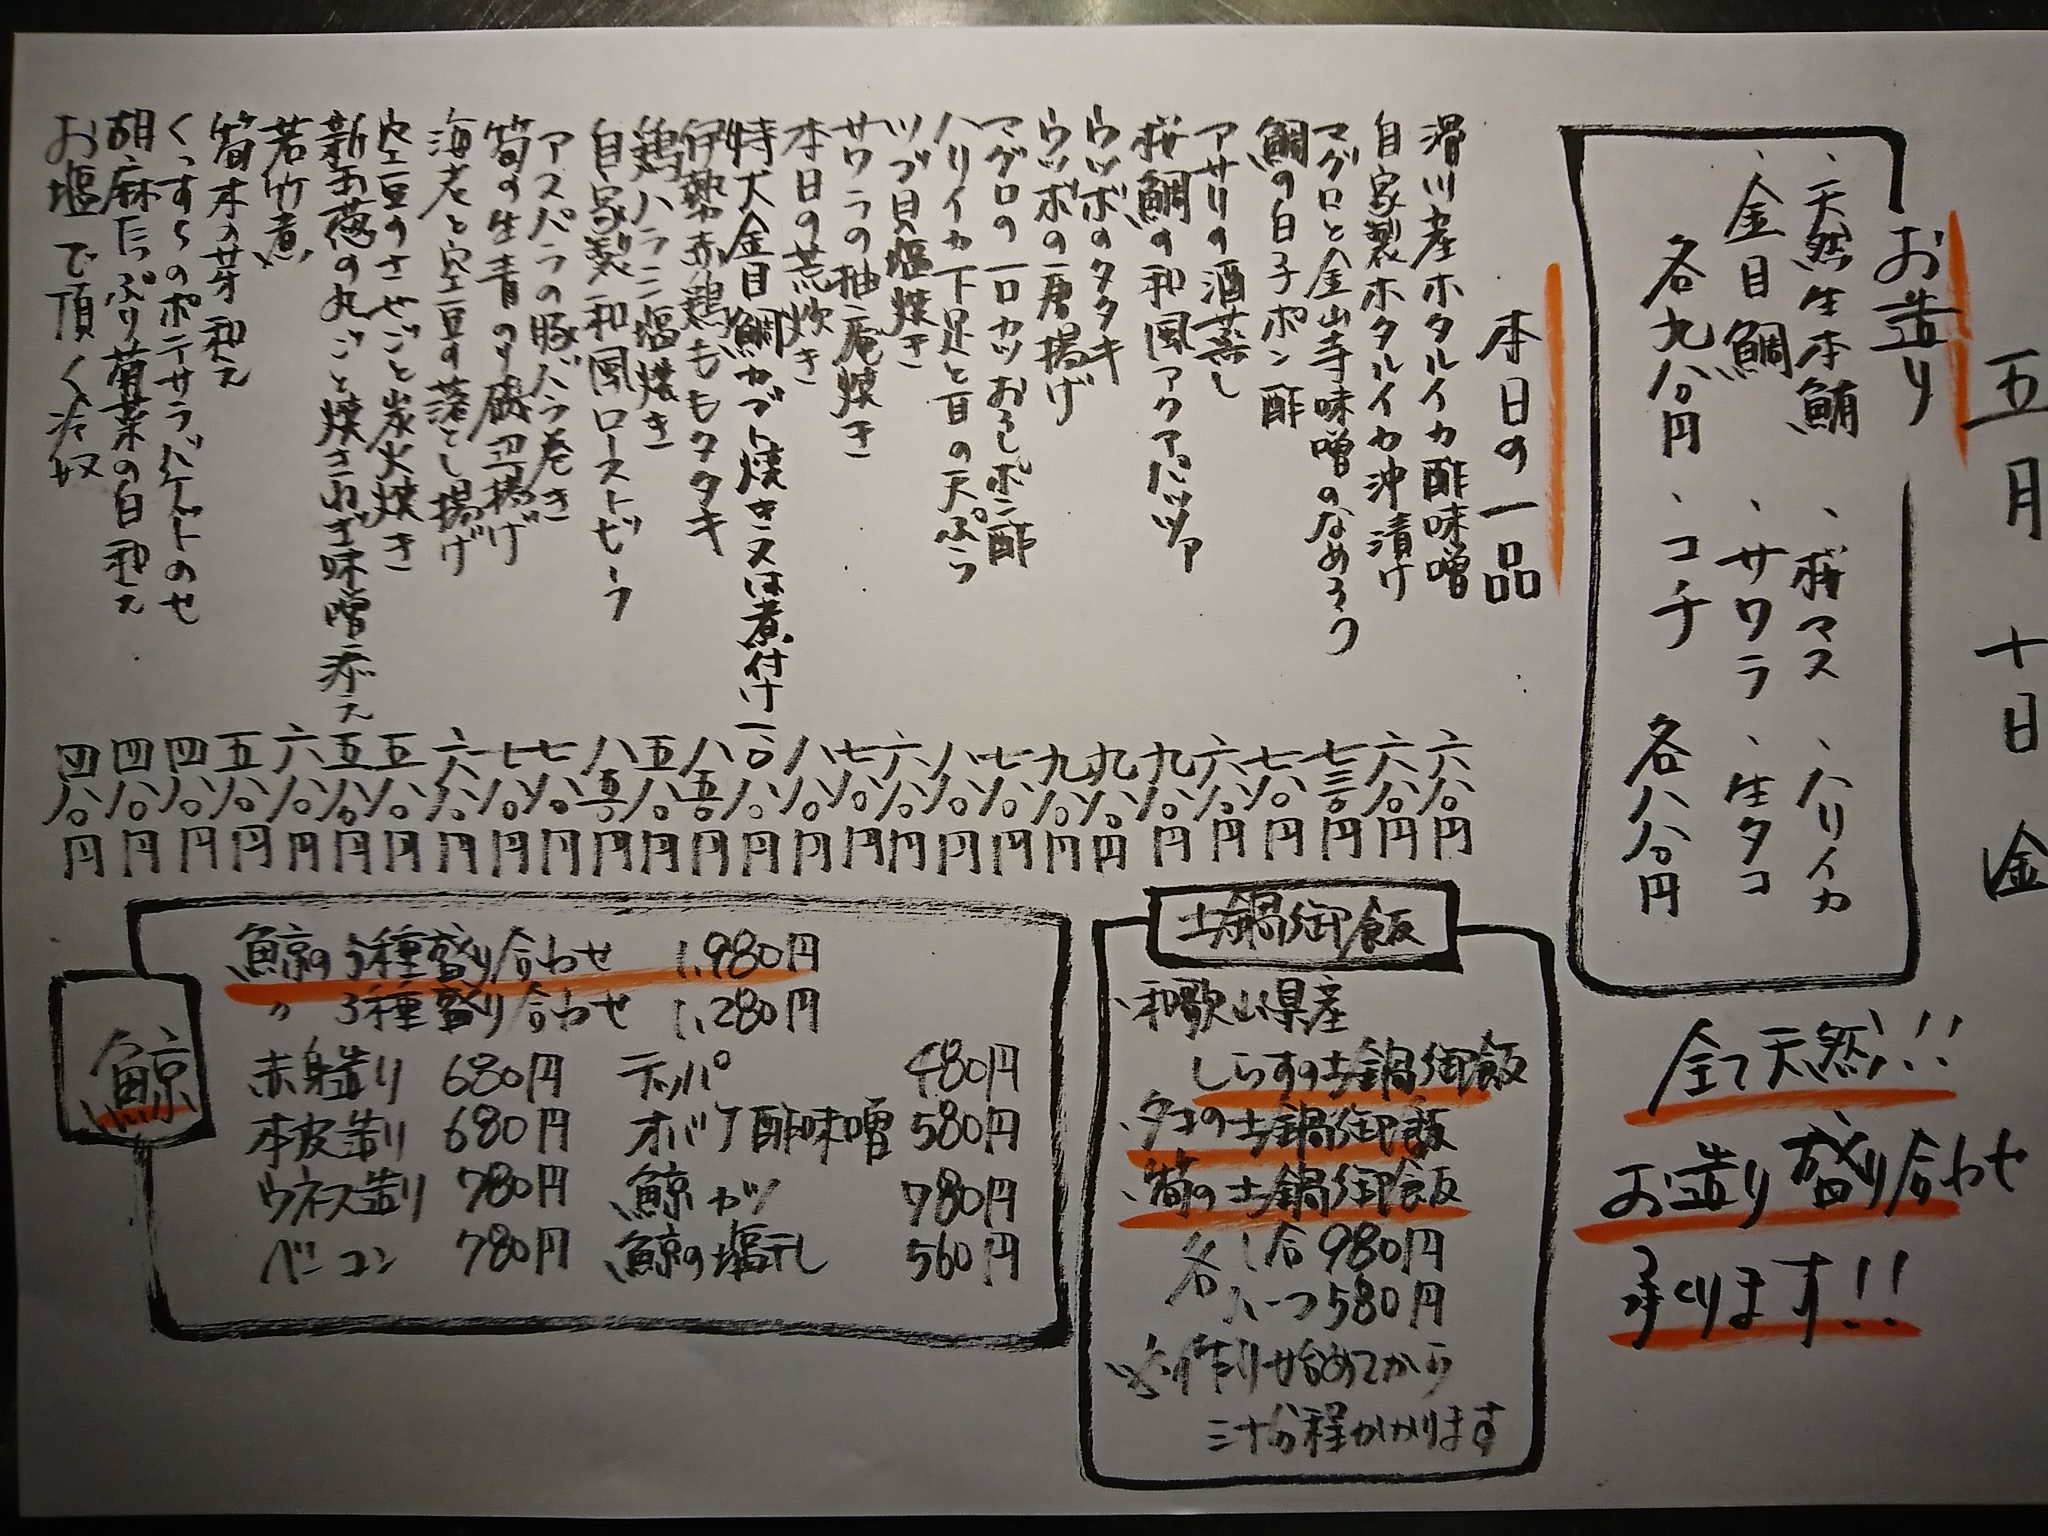 五月十日金
お造り
、天然生本鮪 、桜マス 、ハリイカ
、金目鯛 、サワラ 、生タコ
各九八〇円 、コチ 各八八〇円
全て天然!!
お造り盛り合わせ
承くります!!
本日の一品
滑川産ホタルイカ酢味噌 六八〇円
自家製ホタルイカ沖漬け 六八〇円
マグロと金山寺味噌のなめろう 七三〇円
鯛の白子ポン酢 七八〇円
アサリの酒蒸し 六八〇円
桜鯛の和風アクアパッツァ 九八〇円
ウツボのタタキ 九八〇円
ウツボの唐揚げ 九八〇円
マグロの一口カツおろしポン酢 七八〇円
ハリイカ下足と豆の天ぷら 八八〇円
ツブ貝塩焼き 六八〇円
サワラの柚庵焼き 七八〇円
本日の荒炊き 八八〇円
特大金目鯛カブト焼き又は煮付け 一八〇〇円
伊勢赤鶏ももタタキ 八五〇円
鶏ハラミ塩焼き 五八〇円
自家製和風ローストビーフ 八五〇円
アスパラの豚バラ巻き 七八〇円
筍の生青のり磯辺揚げ 七八〇円
海老と空豆の落とし揚げ 六八〇円
空豆のさやごと炭火焼き 五八〇円
新玉葱の丸ごと焼きねぎ味噌添え 五八〇円
若竹煮 六八〇円
筍木の芽和え 五八〇円
くずし豆腐のポテサラバケットのせ 四八〇円
胡麻たっぷり菊菜の白和え 四八〇円
お塩で頂く冷奴 四八〇円
土鍋御飯
、和歌山県産
しらすの土鍋御飯
、タコの土鍋御飯
、筍の土鍋御飯
各 1合 980円
ハーフ 580円
※作り始めてから
三十分程かかります
鯨
鯨の5種盛り合わせ 1,980円
〃 3種盛り合わせ 1,280円
赤身造り 680円 テッパ 480円
本皮造り 680円 オバケ酢味噌 580円
ウネス造り 780円 鯨カツ 780円
ベーコン 780円 鯨の塩干し 560円